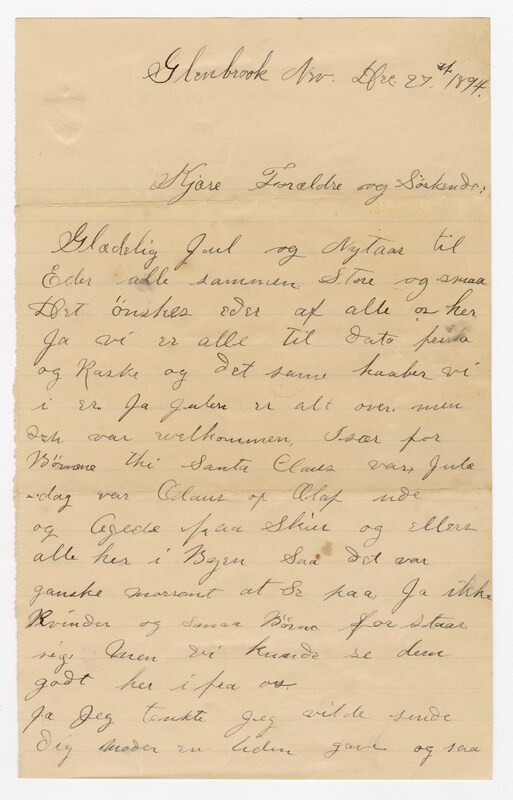 Glenbrook Nev. Dec. 27st 1894.
Kjære Forældre og Söskende:
Glædelig Jul og Nytaar til
Eder alle sammen Store og smaa
Det önskes eder af alle os her
Ja vi er alle til dato friske
og Raske og det same haaber vi
i er. Ja Julen er alt over. men
den var velkommen, Især for
Børnene thi Santa Claus var, Jule
dag var Claus og Olaf ude
og Agede paa Skier og ellers
alle her i Byen Saa det var
ganske morsomt at Se paa, Ja ikke
Kvinder og smaa Børne forstaar
sig, Men vi kunde se dem
godt her ifra os.
Ja Jeg tenkte Jeg vilde sende
dig moder en liden gave og saa